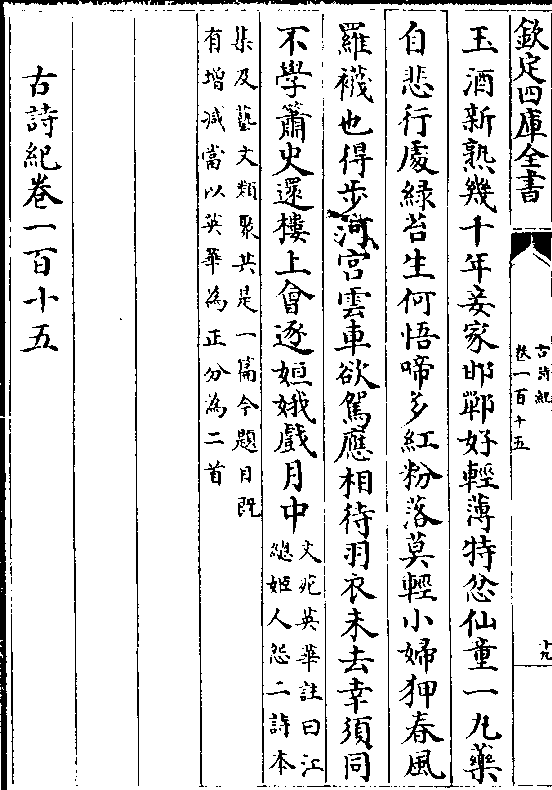 欽定四庫全書
古詩紀
卷一百十五
十九
玉酒新熟幾十年妾家邯鄲好輕薄特忿仙童一丸藥
自悲行處綠苔生何悟啼多紅粉落莫輕小婦狎春風
羅襪也得步河宮雲車欲駕應相待羽衣未去幸須同
不學簫史還樓上會逐姮娥戲月中
文苑英華註曰江
總姬人怨二詩本
集及藝文類聚共是一篇今題目既
有增減當以英華為正分為二首
古詩紀卷一百十五